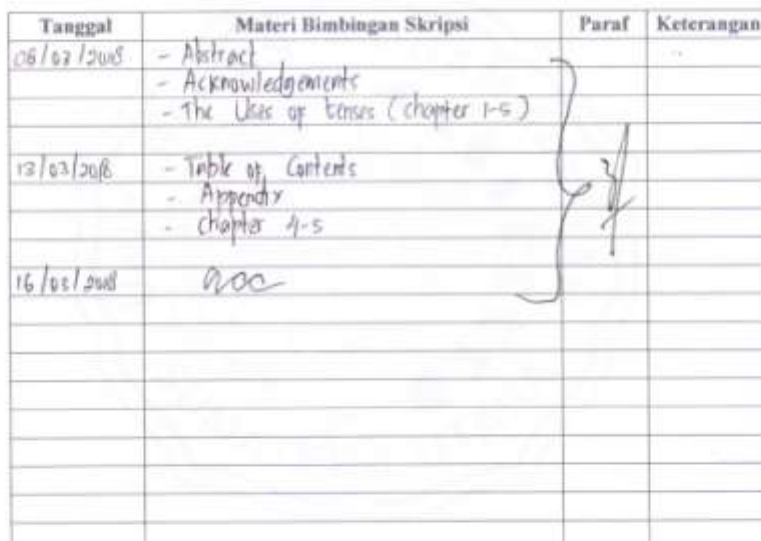 Tanggal Materi Bimbingan Skripsi Paraf Keterangan
06/03/2018 - Abstract
- Acknowledgements
- The Uses of tenses (chapter 1-5)
13/03/2018 - Table of Contents
- Appendix
- Chapter 4-5
16/03/2018 acc